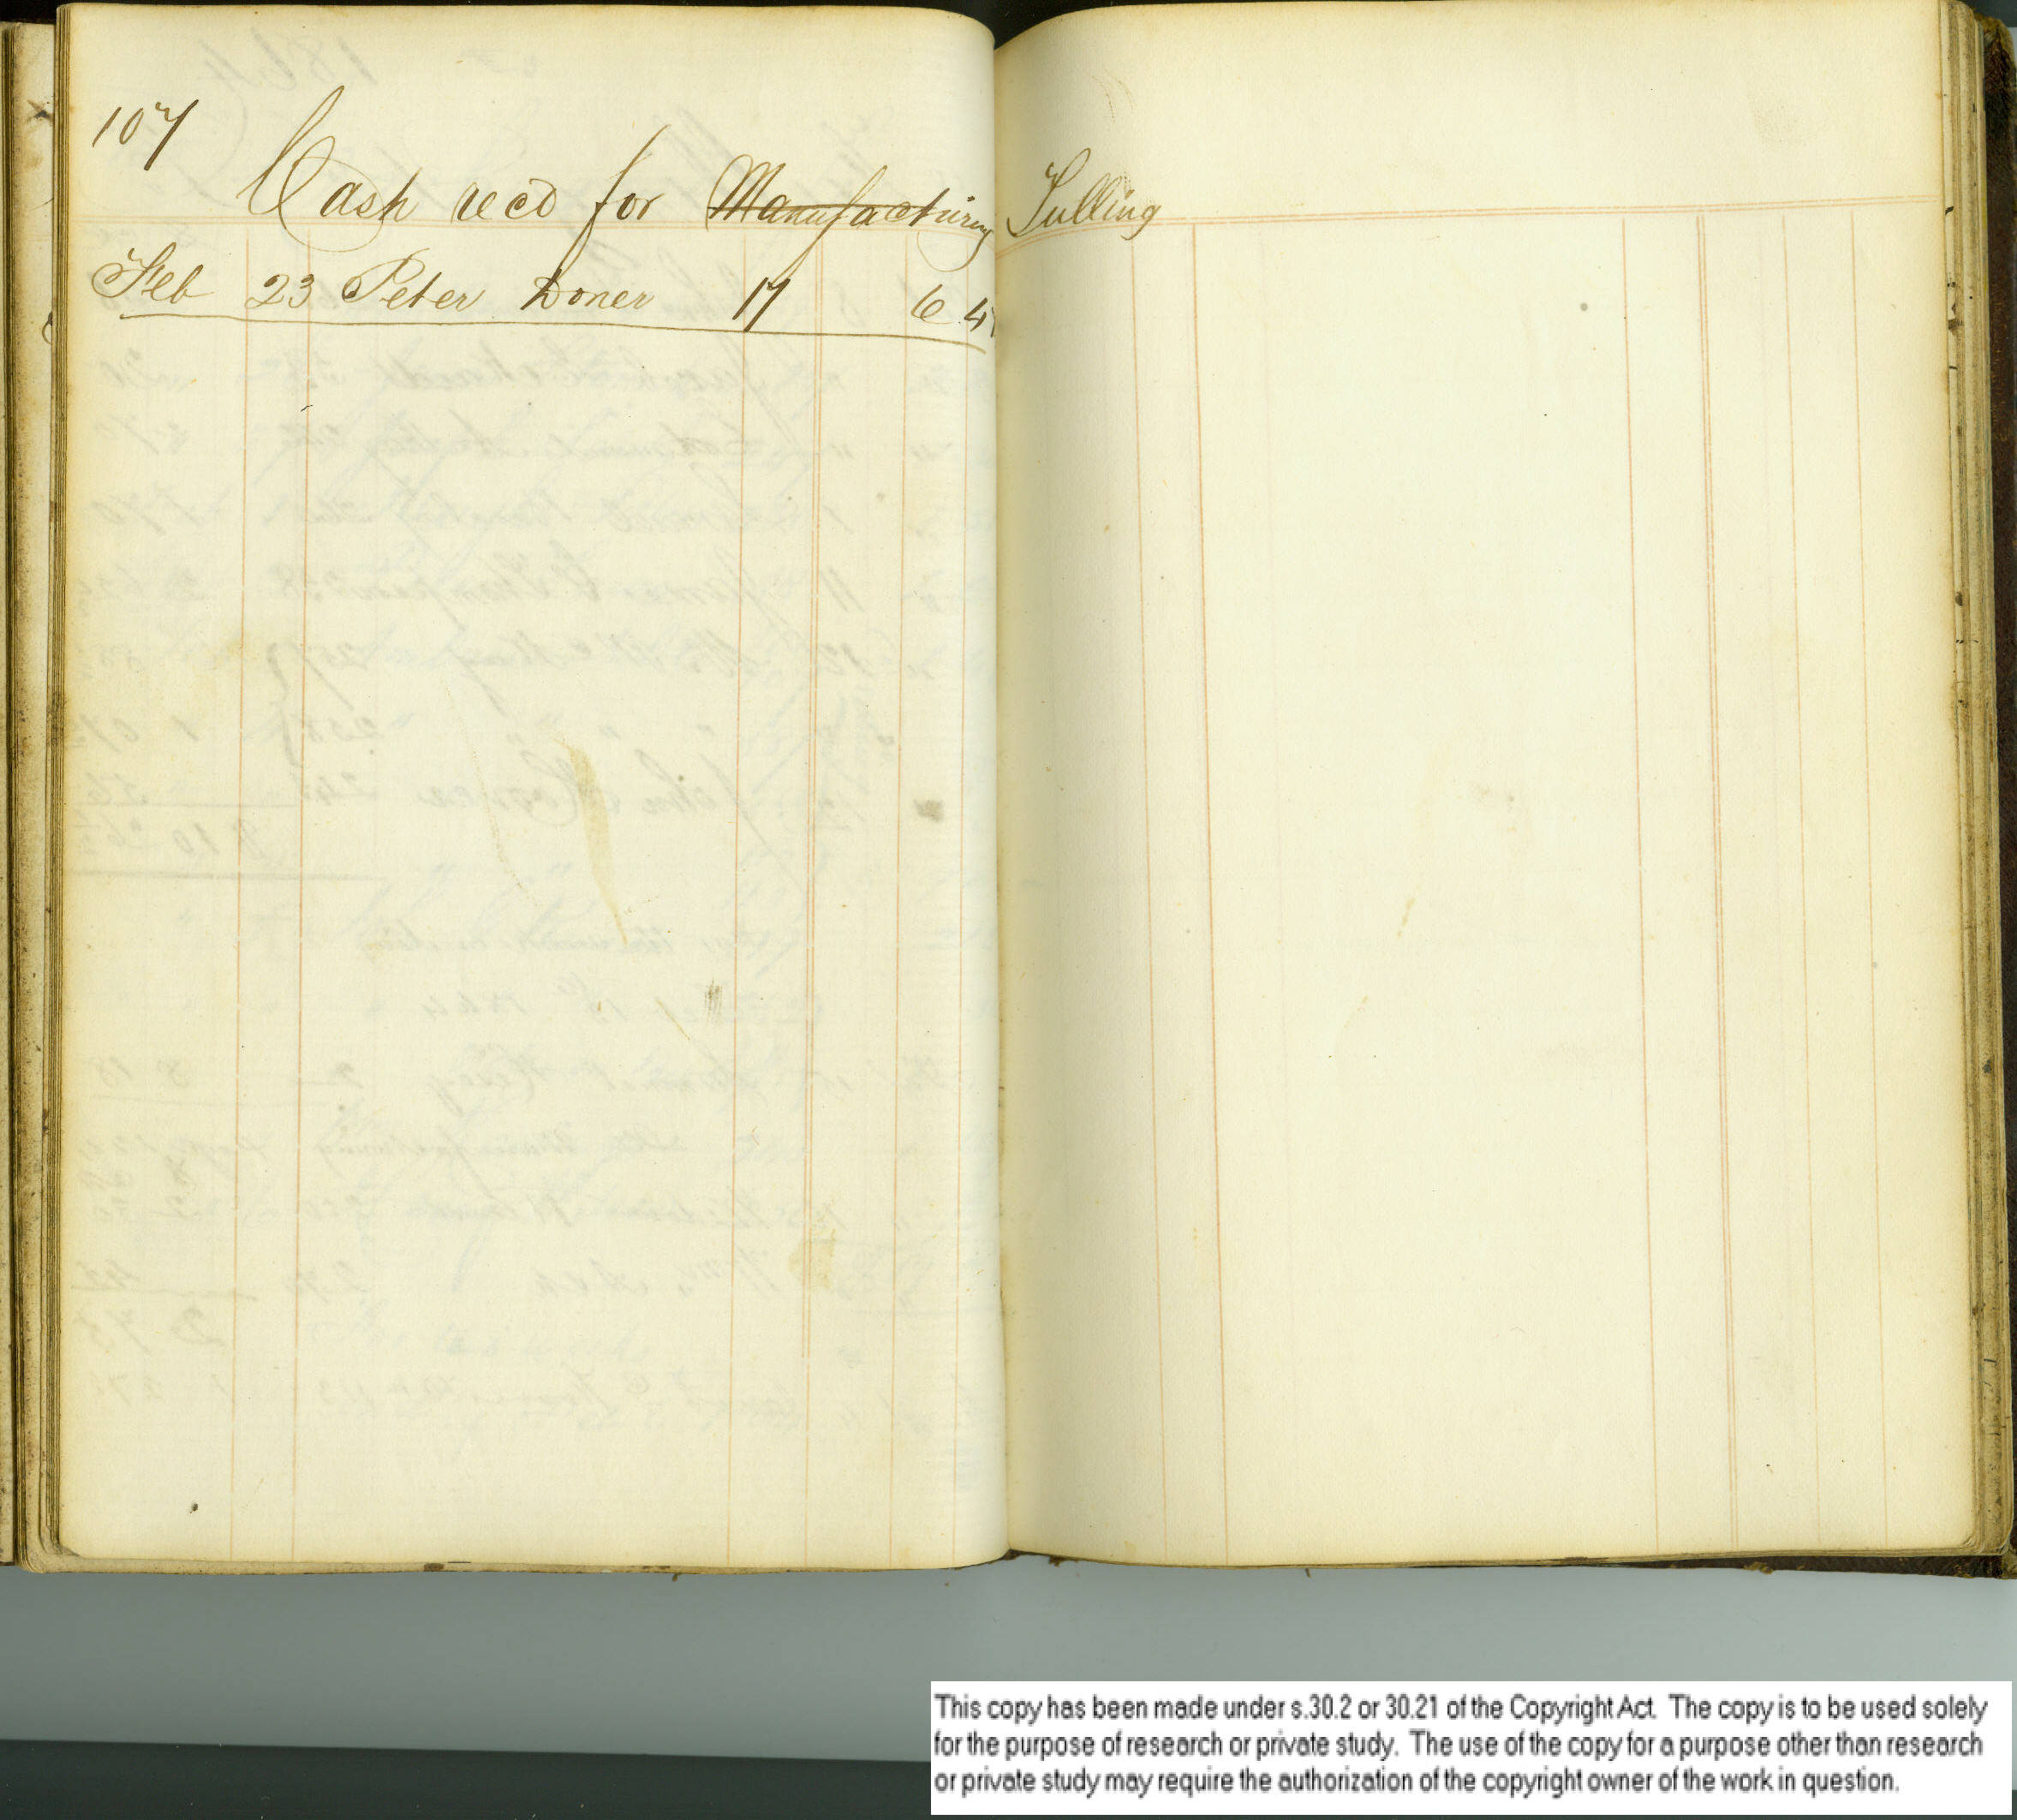 107
Cash recd for Manufacturing Fulling
Feb 23 Peter Doner 17 6 4
This copy has been made under s.30.2 or 30.21 of the Copyright Act. The copy is to be used solely
for the purpose of research or private study. The use of the copy for a purpose other than research
or private study may require the authorization of the copyright owner of the work in question.